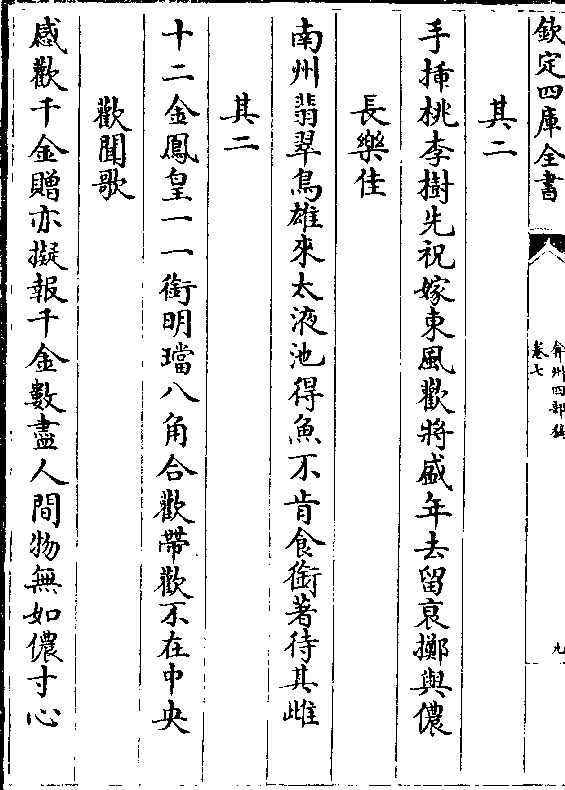 欽定四庫全書
弇州四部稿
卷七
九
其二
手插桃李樹先祝嫁東風歡將盛年去留哀擲與儂
長樂佳
南州翡翠鳥雄來太液池得魚不肯食銜著待其雌
其二
十二金鳳皇一一銜明璫八角合歡帶歡不在中央
歡聞歌
感歡千金贈亦擬報千金數盡人間物無如儂寸心